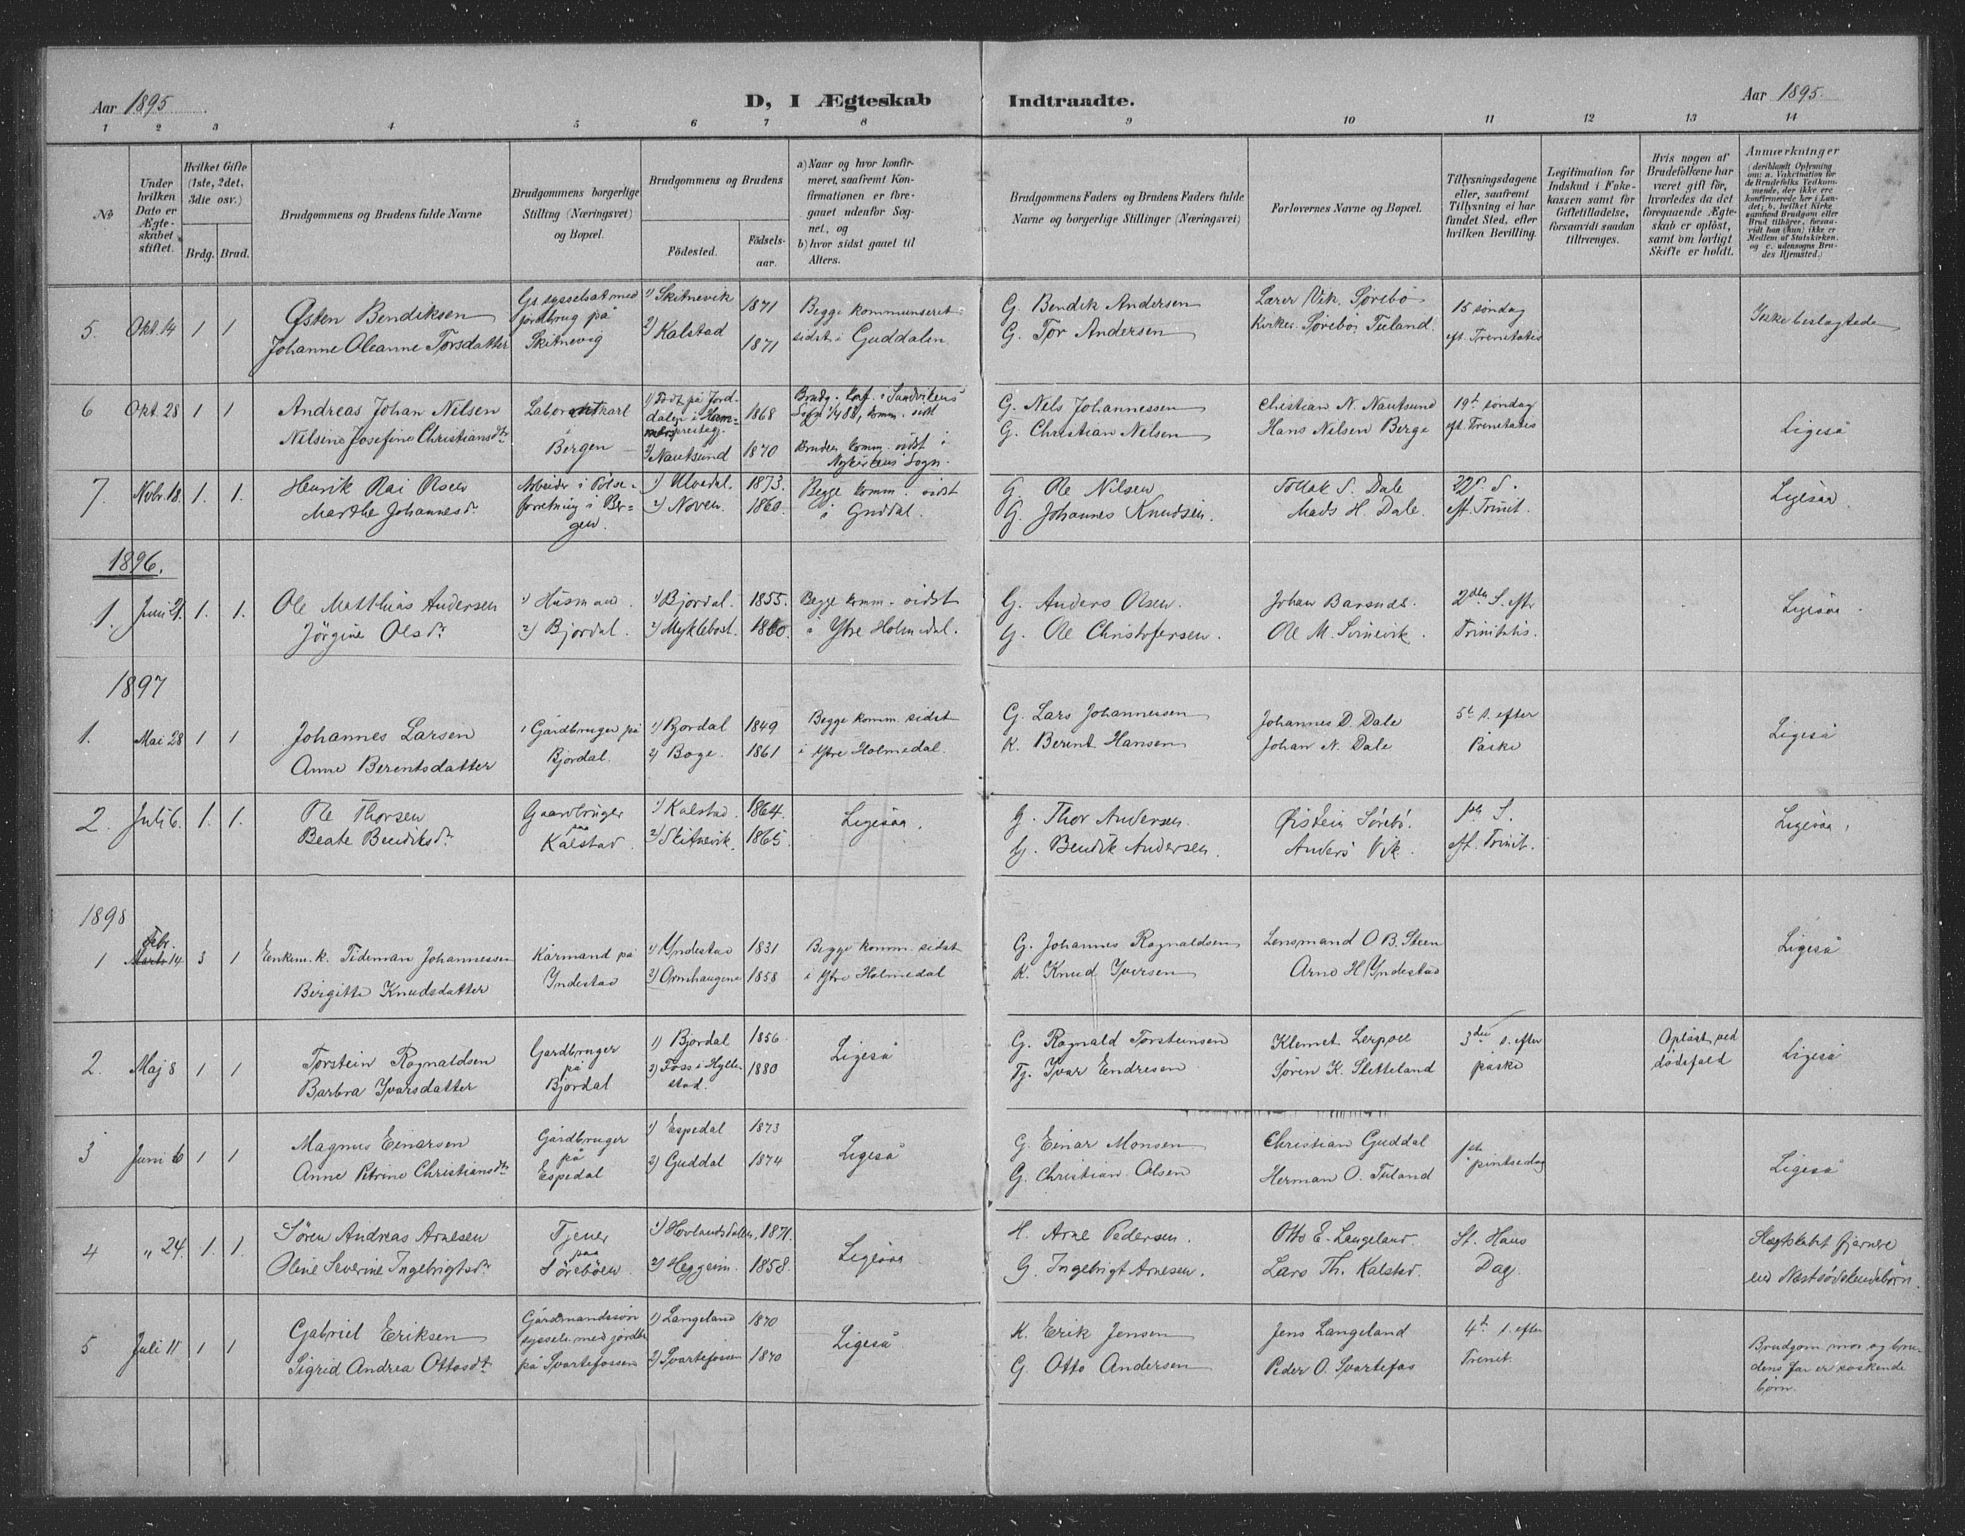 Aar 1895
D, I Ægteskab Indtraadte.
Aar 1895.
1 2 3 4 5 6 7 8 9 10 11 12 13 14
№
Under hvilken Dato er Ægteskabet stiftet.
Hvilket Gifte (1ste, 2det, 3die osv.)
Brdg. Brud.
Brudgommens og Brudens fulde Navne
Brudgommens borgerlige Stilling (Næringsvei) og Bopæl.
Brudgommens og Brudens
Födested.
Födselsaar.
a) Naar og hvor konfirmeret, saafremt Konfirmationen er foregaaet udenfor Sognet, og
b) hvor sidst gaaet til Alters.
Brudgommens Faders og Brudens Faders fulde Navne og borgerlige Stillinger (Næringsvei)
Forlovernes Navne og Bopæl.
Tillysningsdagene eller, saafremt Tillysning ei har fundet Sted, efter hvilken Bevilling.
Legitimation for Indskud i Enkekassen samt for Giftetilladelse, forsaavidt saadan tiltrænges.
Hvis nogen af Brudefolkene har været gift för, hvorledes da det foregaaende Ægteskab er oplöst, samt om lovligt Skifte er holdt.
Anmærkninger
(deriblandt Oplysning om: a. Vakcination for de Brudefolks Vedkommende, der ikke ere konfirmerede her i Landet; b. hvilket Kirkesamfund Brudgom eller Brud tilhører, forsaavidt han (hun) ikke er Medlem af Statskirken. og c. udensogns Brudes Hjemsted.)
5. Okt. 14 1 1
Østen Bendiksen
Johanne Oleanne Torsdatter
Gs. sysselsat med jordbrug på Skitnevig
1) Skitnevik 1871
2) Kalstad 1871
Begge kommuniseret sidst i Guddalen
G. Bendik Andersen
G. Tor Andersen
Lærer Vik. Sørebö
Kirkes. Sørebö, Tuland.
15 søndag eft. Trenitatis
Ikke beslagtede
6 Okt. 28 1 1
Andreas Johan Nilsen
Nilsine Josefine Christiansdtr
Laborantkarl
Bergen
1868
2) Nautsund 1870
Brudg. konf. i Sandvikens Sogn 1/4 88, komm. sidst
Bruden komm. sidst i Nykirkens Sogn.
G. Nels Johannessen
G. Christian Nelsen
Christian N. Nautsund
Hans Nilsen Berge
19de søndag eft. Trenitates
Ligeså
7 Novbr. 18. 1. 1.
Henrik Kai Olsen
Marthe Johannesdr.
Arbeider i Pölseforretning i Bergen.
1) Ulvedal. 1873.
2) Noven. 1860.
Begge komm. sidst i Guddal.
G. Ole Nilsen
G. Johannes Knudsen.
Tollak S. Dale
Mads H. Dale.
22d. S. eft. Trinit.
Ligesaa
1896.
1. Juni 21. 1. 1.
Ole Matthias Andersen
Jörgine Olsdr
1) Husmand.
2) Bjordal.
1) Bjordal. 1855.
2) Myklebost. 1860.
Begge komm. sidst i Ytre Holmedal.
G. Anders Olsen.
G. Ole Christofersen.
Johan Barsnes.
Ole M. Svinevik.
2den S. eftr Trinitatis.
Ligesaa
1897
1. Mai 28 1 1
Johannes Larsen
Anne Berentsdatter
1 Gårdbruger på Bjordal.
1) Bjordal 1849
2) Boge. 1861
Begge komm. sidst i Ytre Holmedal.
G. Lars Johannessen
K. Berent Hansen
Johannes D. Dale
Johan N. Dale
5te s. efter Påske
Ligeså
2. Juli 6. 1. 1.
Ole Thorsen
Beate Bendiksdr.
Gaardbruger paa Kalstad.
1) Kalstad. 1864.
2) Skitnevik. 1865.
Ligesaa.
G. Thor Andersen.
G. Bendik Andersen.
Øistein Sørebö.
Anders Vik.
1ste S. eft. Trinit.
Ligesaa.
1898
1 Febr. Marts 14 3 1
Enkem. k. Tideman Johannessen
Birgitte Knudsdatter
Kårmand på Yndestad
1) Yndestad 1831
2) Ormhaugene 1858
Begge komm. sidst i Ytre Holmedal
G. Johannes Ragnaldsen
K. Knud Iversen
Lensmand O. B. Steen
Arne H. Yndestad
Ligeså
2. Maj 8 1 1
Torstein Ragnaldsen
Barbra Ivarsdatter
Gardbruger på Bjordal
1) Bjordal 1856
2) Foss i Hyllestad. 1880
Ligeså
G. Ragnald Torsteinsen
Tj. Ivar Endresen
Klemet Lerpoll
Søren K. Sletteland
3die s. efter påske
Opløst ved dödsfald
Ligeså
3 Juni 6 1 1
Magnus Einarsen
Anne Petrine Christiansdtr
Gårdbruger på Espedal
1) Espedal 1873
2) Guddal 1874
Ligeså
G. Einar Monsen
G. Christian Olsen
Christian Guddal
Herman O. Tuland
1ste pintsedag
Ligeså
4 " 24. 1. 1.
Sören Andreas Arnesen
Oline Severine Ingebrigtsdr
Tjener paa Söreböen
1) Hovlandsdalen, 1871.
2) Heggeim. 1858.
Ligesaa
H. Arne Pedersen.
G. Ingebrigt Arnesen.
Otto E. Langeland.
Lars Th. Kalstad.
St. Hans Dag.
Slægtskabet fjernere end Næstsödskendebörn.
5 Juli 11 1 1
Gabriel Eriksen
Sigrid Andrea Ottosdtr
Gårdmandssön syssels. med jordbr på Svartefossen
1) Langeland 1870
2) Svartefossen 1870
Ligeså
K. Erik Jensen
G. Otto Andersen
Jens Langeland
Peder O. Svartefos
4de s. efter Trenit.
Brudgom. mor og brudens far er søskendebörn.